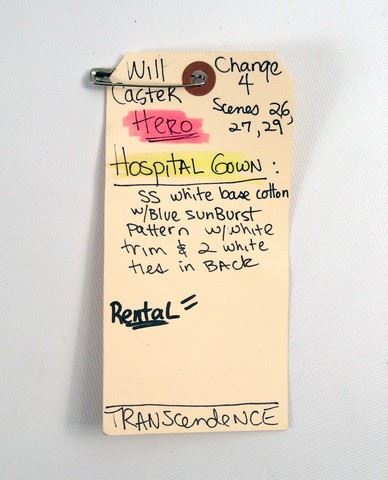 Will Change
Caster 4
HERO Scenes 26,
27, 29
HOSPITAL GOWN:
SS white base cotton
w/Blue SunBurst
Pattern w/white
trim & 2 white
ties in BACK
Rental =
TRANSCendENCE